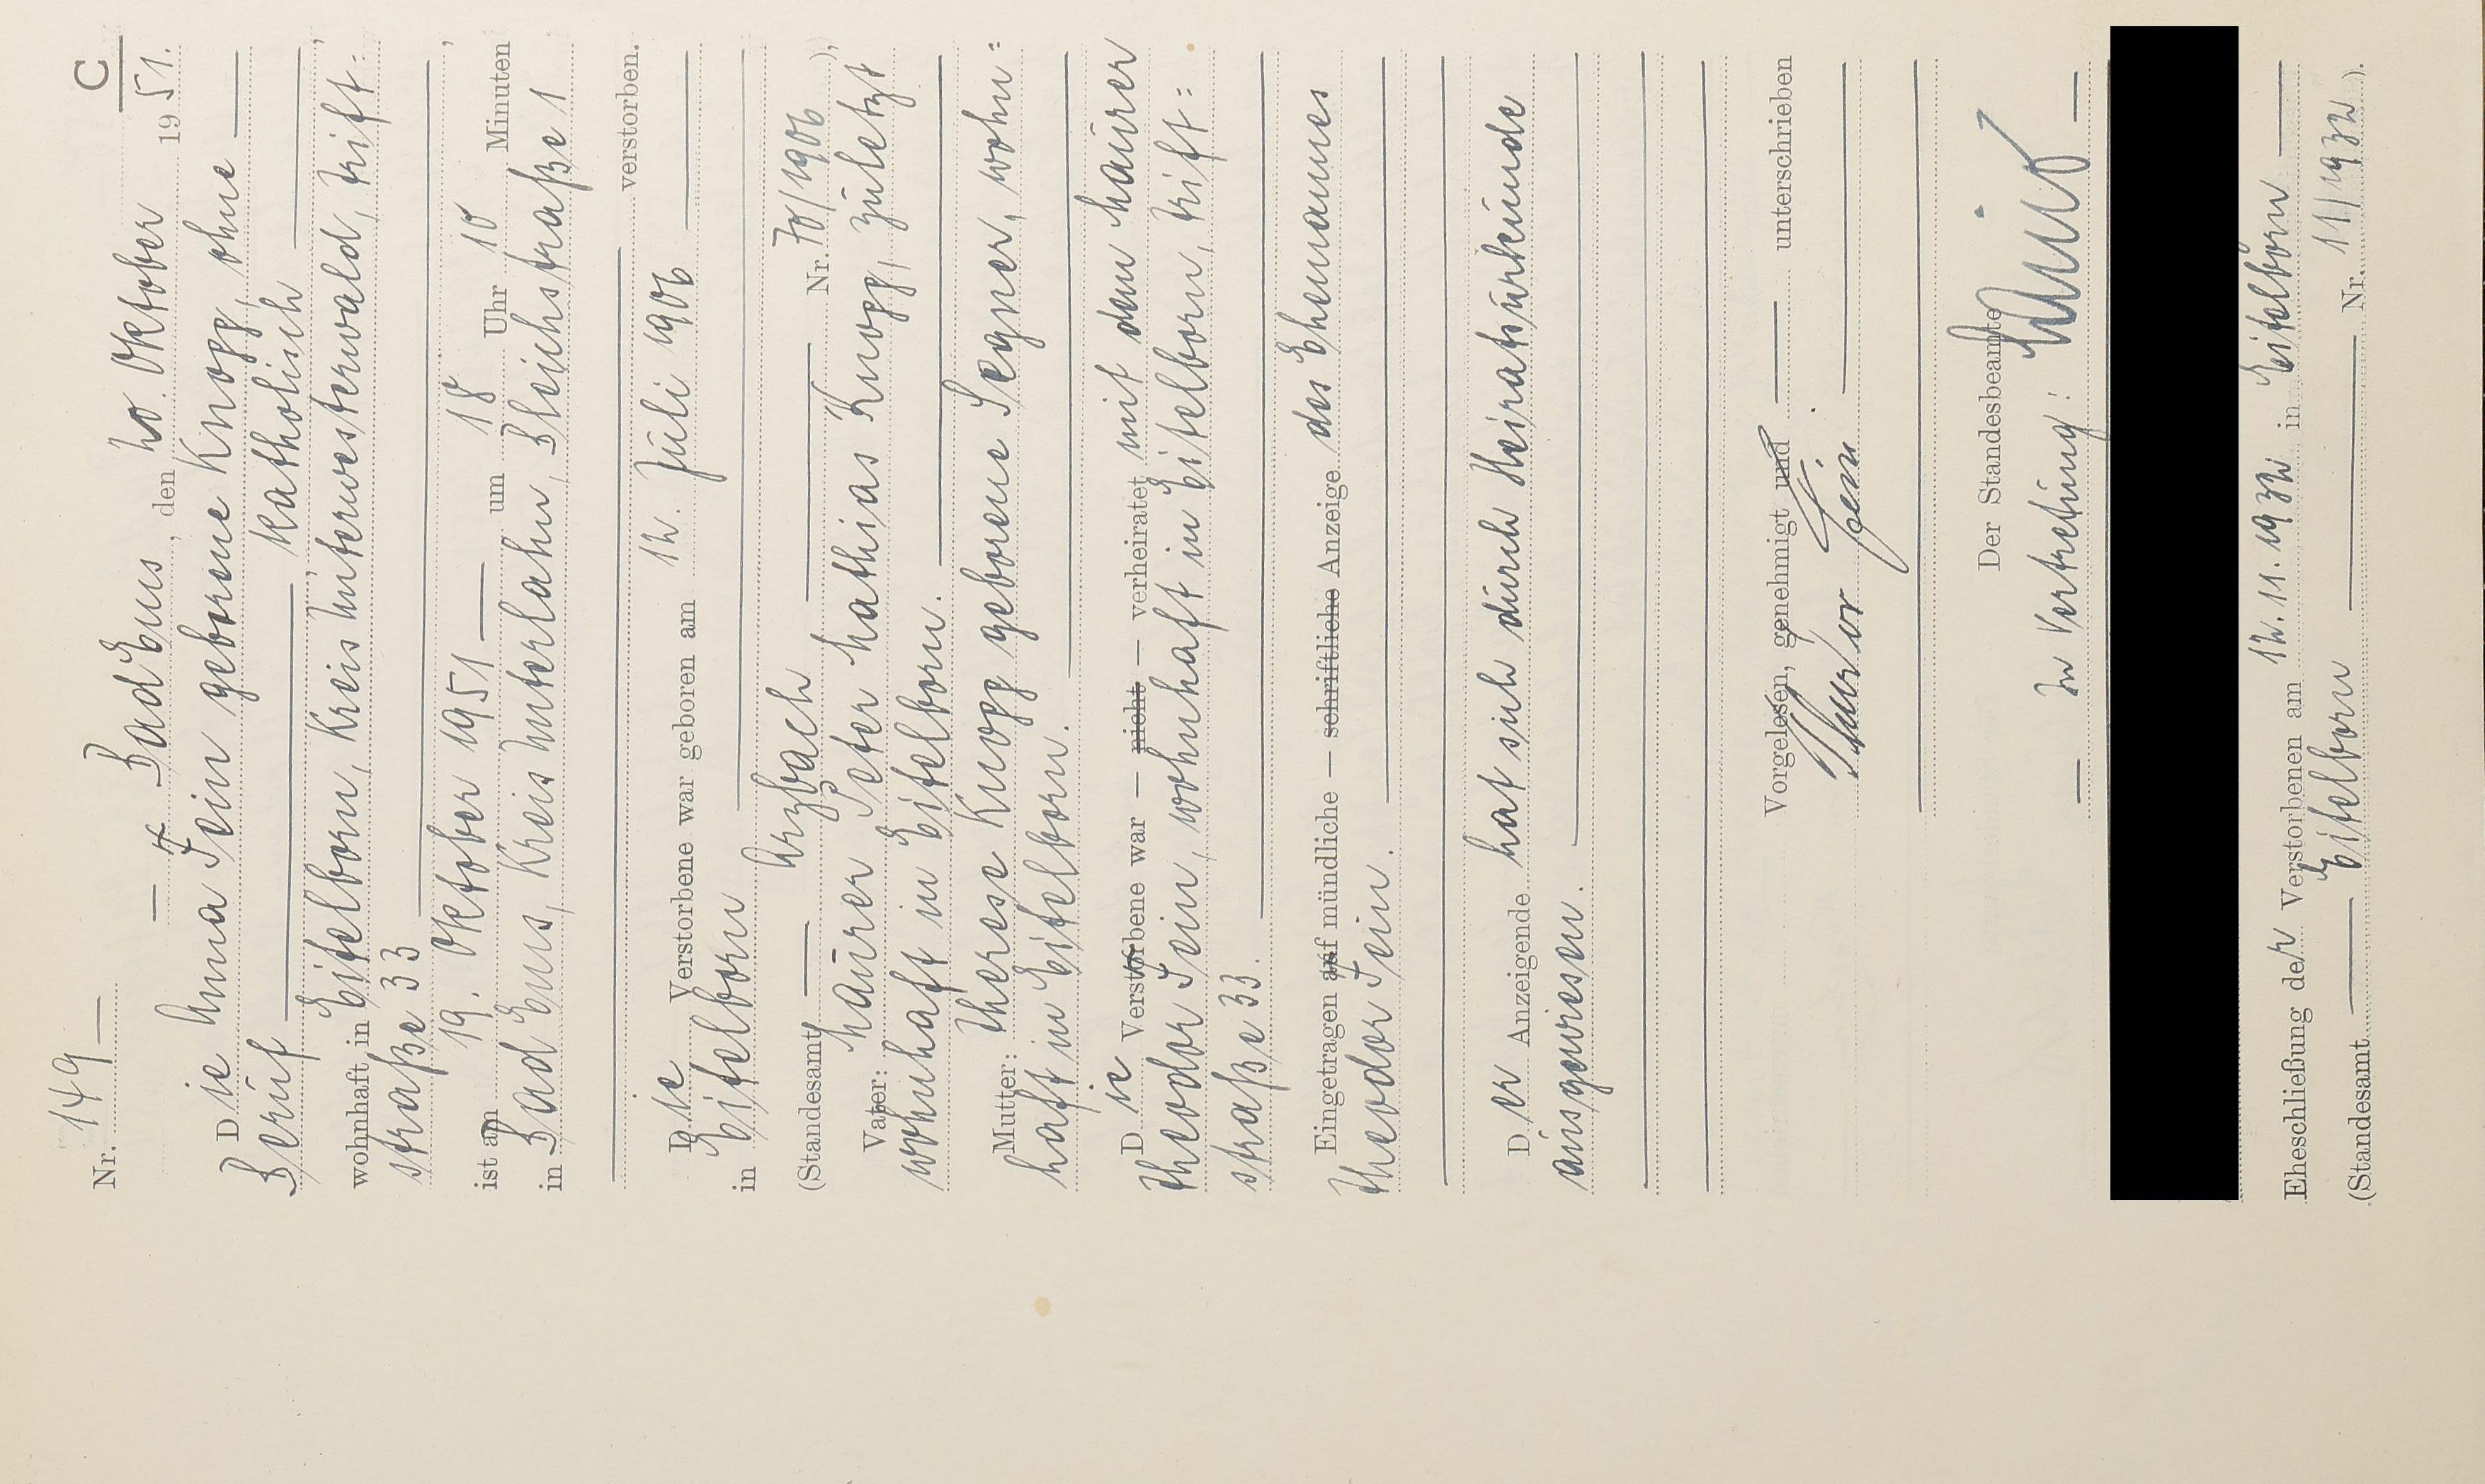 C
Nr. 149
Bad Ems, den 20. Oktober 1951.
Die Anna Fein geborene Knopp, ohne
Beruf katholisch
wohnhaft in Eitelborn, Kreis Unterwesterwald, Trift-
straße 33,
ist am 19. Oktober 1951 um 18 Uhr 10 Minuten
in Bad Ems, Kreis Unterlahn, Bleichstraße 1
verstorben.
Die Verstorbene war geboren am 12. Juli 1906
in Eitelborn
(Standesamt Arzbach Nr. 70/1906),
Vater: Maurer Peter Mathias Knopp, zuletzt
wohnhaft in Eitelborn.
Mutter: Therese Knopp geborene Segner, wohn-
haft in Eitelborn.
Die Verstorbene war — nicht — verheiratet mit dem Maurer
Theodor Fein, wohnhaft in Eitelborn, Trift-
straße 33.
Eingetragen auf mündliche — schriftliche Anzeige des Ehemannes
Theodor Fein.
Der Anzeigende hat sich durch Heiratsurkunde
ausgewiesen.
Vorgelesen, genehmigt und unterschrieben
Theodor Fein.
Der Standesbeamte
In Vertretung:
Eheschließung der Verstorbenen am 12.11.1932 in Eitelborn
(Standesamt Eitelborn Nr. 11/1932).